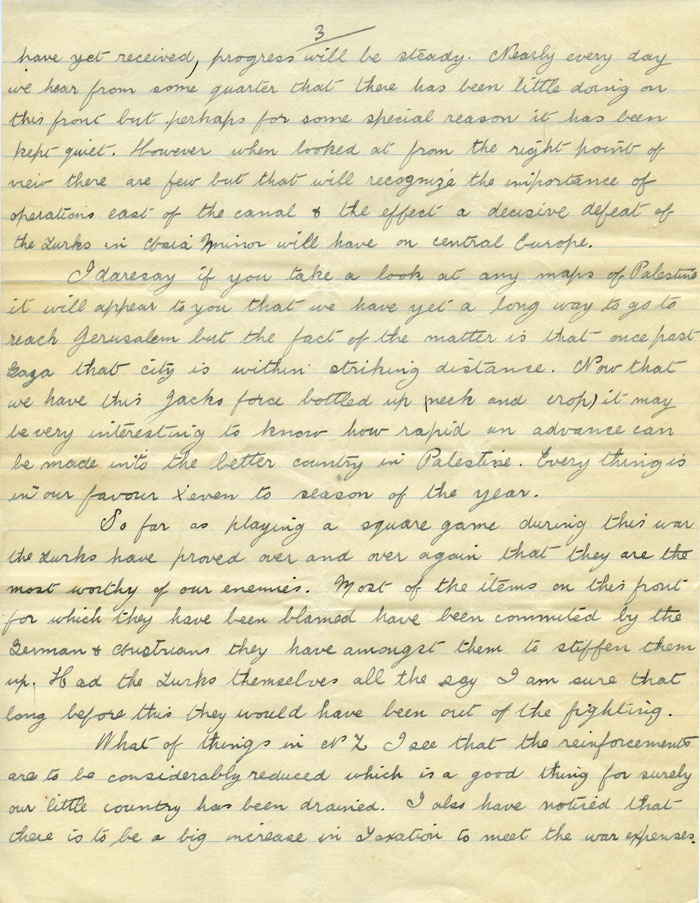 3
have yet received, progress will be steady. Nearly every day
we hear from some quarter that there has been little doing on
this front but perhaps for some special reason it has been
kept quiet. However when looked at from the right point of
veiw there are few but that will recognize the importance of
operations east of the canal & the effect a decisive defeat of
the Turks in Asia Minor will have on central Europe.
I daresay if you take a look at any maps of Palestine
it will appear to you that we have yet a long way to go to
reach Jerusalem but the fact of the matter is that once past
Gaza that city is within striking distance. Now that
we have this Jacks force bottled up (neck and crop) it may
be very interesting to know how rapid an advance can
be made into the better country in Palestine. Every thing is
in our favour & even to season of the year.
So far as playing a square game during this war
the Turks have proved over and over again that they are the
most worthy of our enemies. Most of the items on this front
for which they have been blamed have been commited by the
German & Austrians they have amongst them to stiffen them
up. Had the Turks themselves all the say I am sure that
long before this they would have been out of the fighting.
What of things in NZ I see that the reinforcements
are to be considerably reduced which is a good thing for surely
our little country has been drained. I also have noticed that
there is to be a big increase in Taxation to meet the war expenses.